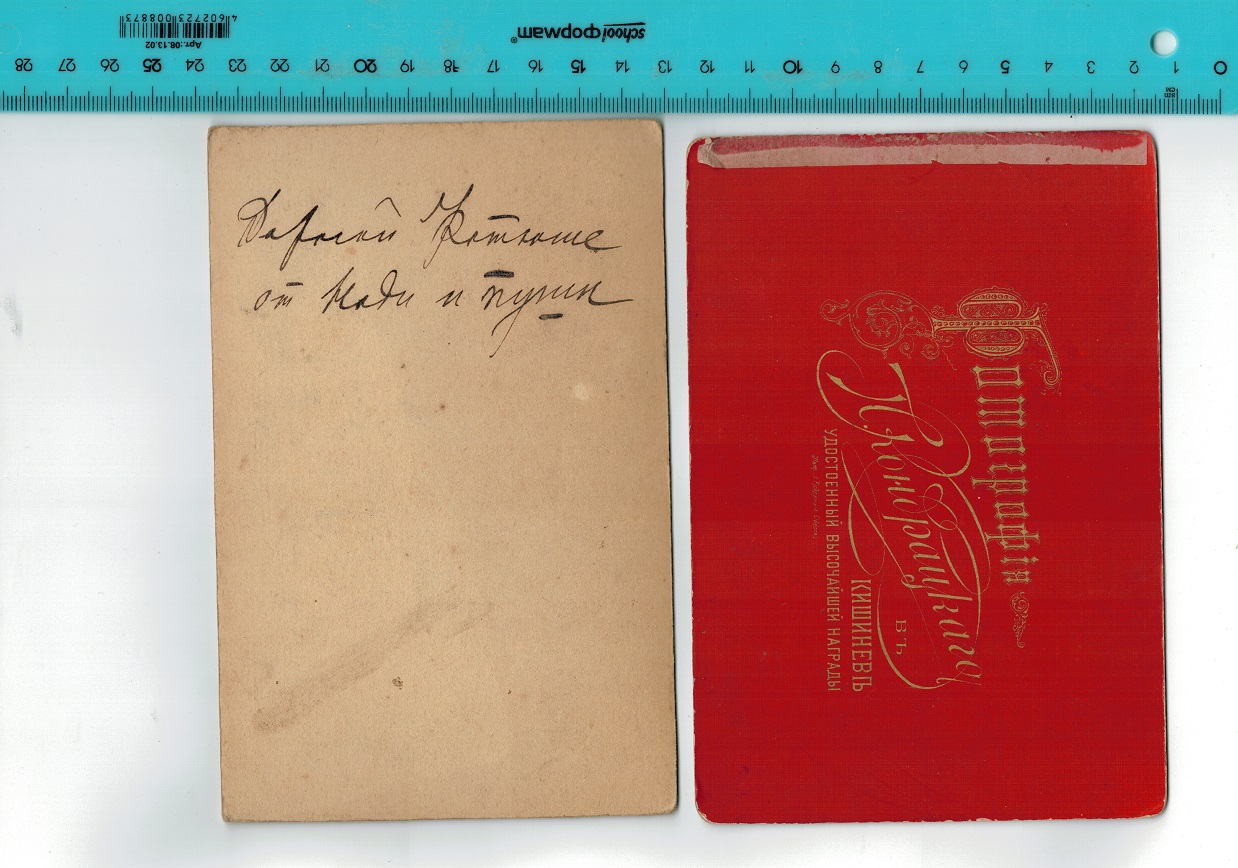 4602723008873
Арт.:08.13.02
schoolформат®
28 27 26 25 24 23 22 21 20 19 18 17 16 15 14 13 12 11 10 9 8 7 6 5 4 3 2 1 0
см
Дорогой Котюше
от Нади и
Фотографія
П. Кондрацкаго
въ
КИШИНЕВѢ
УДОСТОЕННЫЙ ВЫСОЧАЙШЕЙ НАГРАДЫ